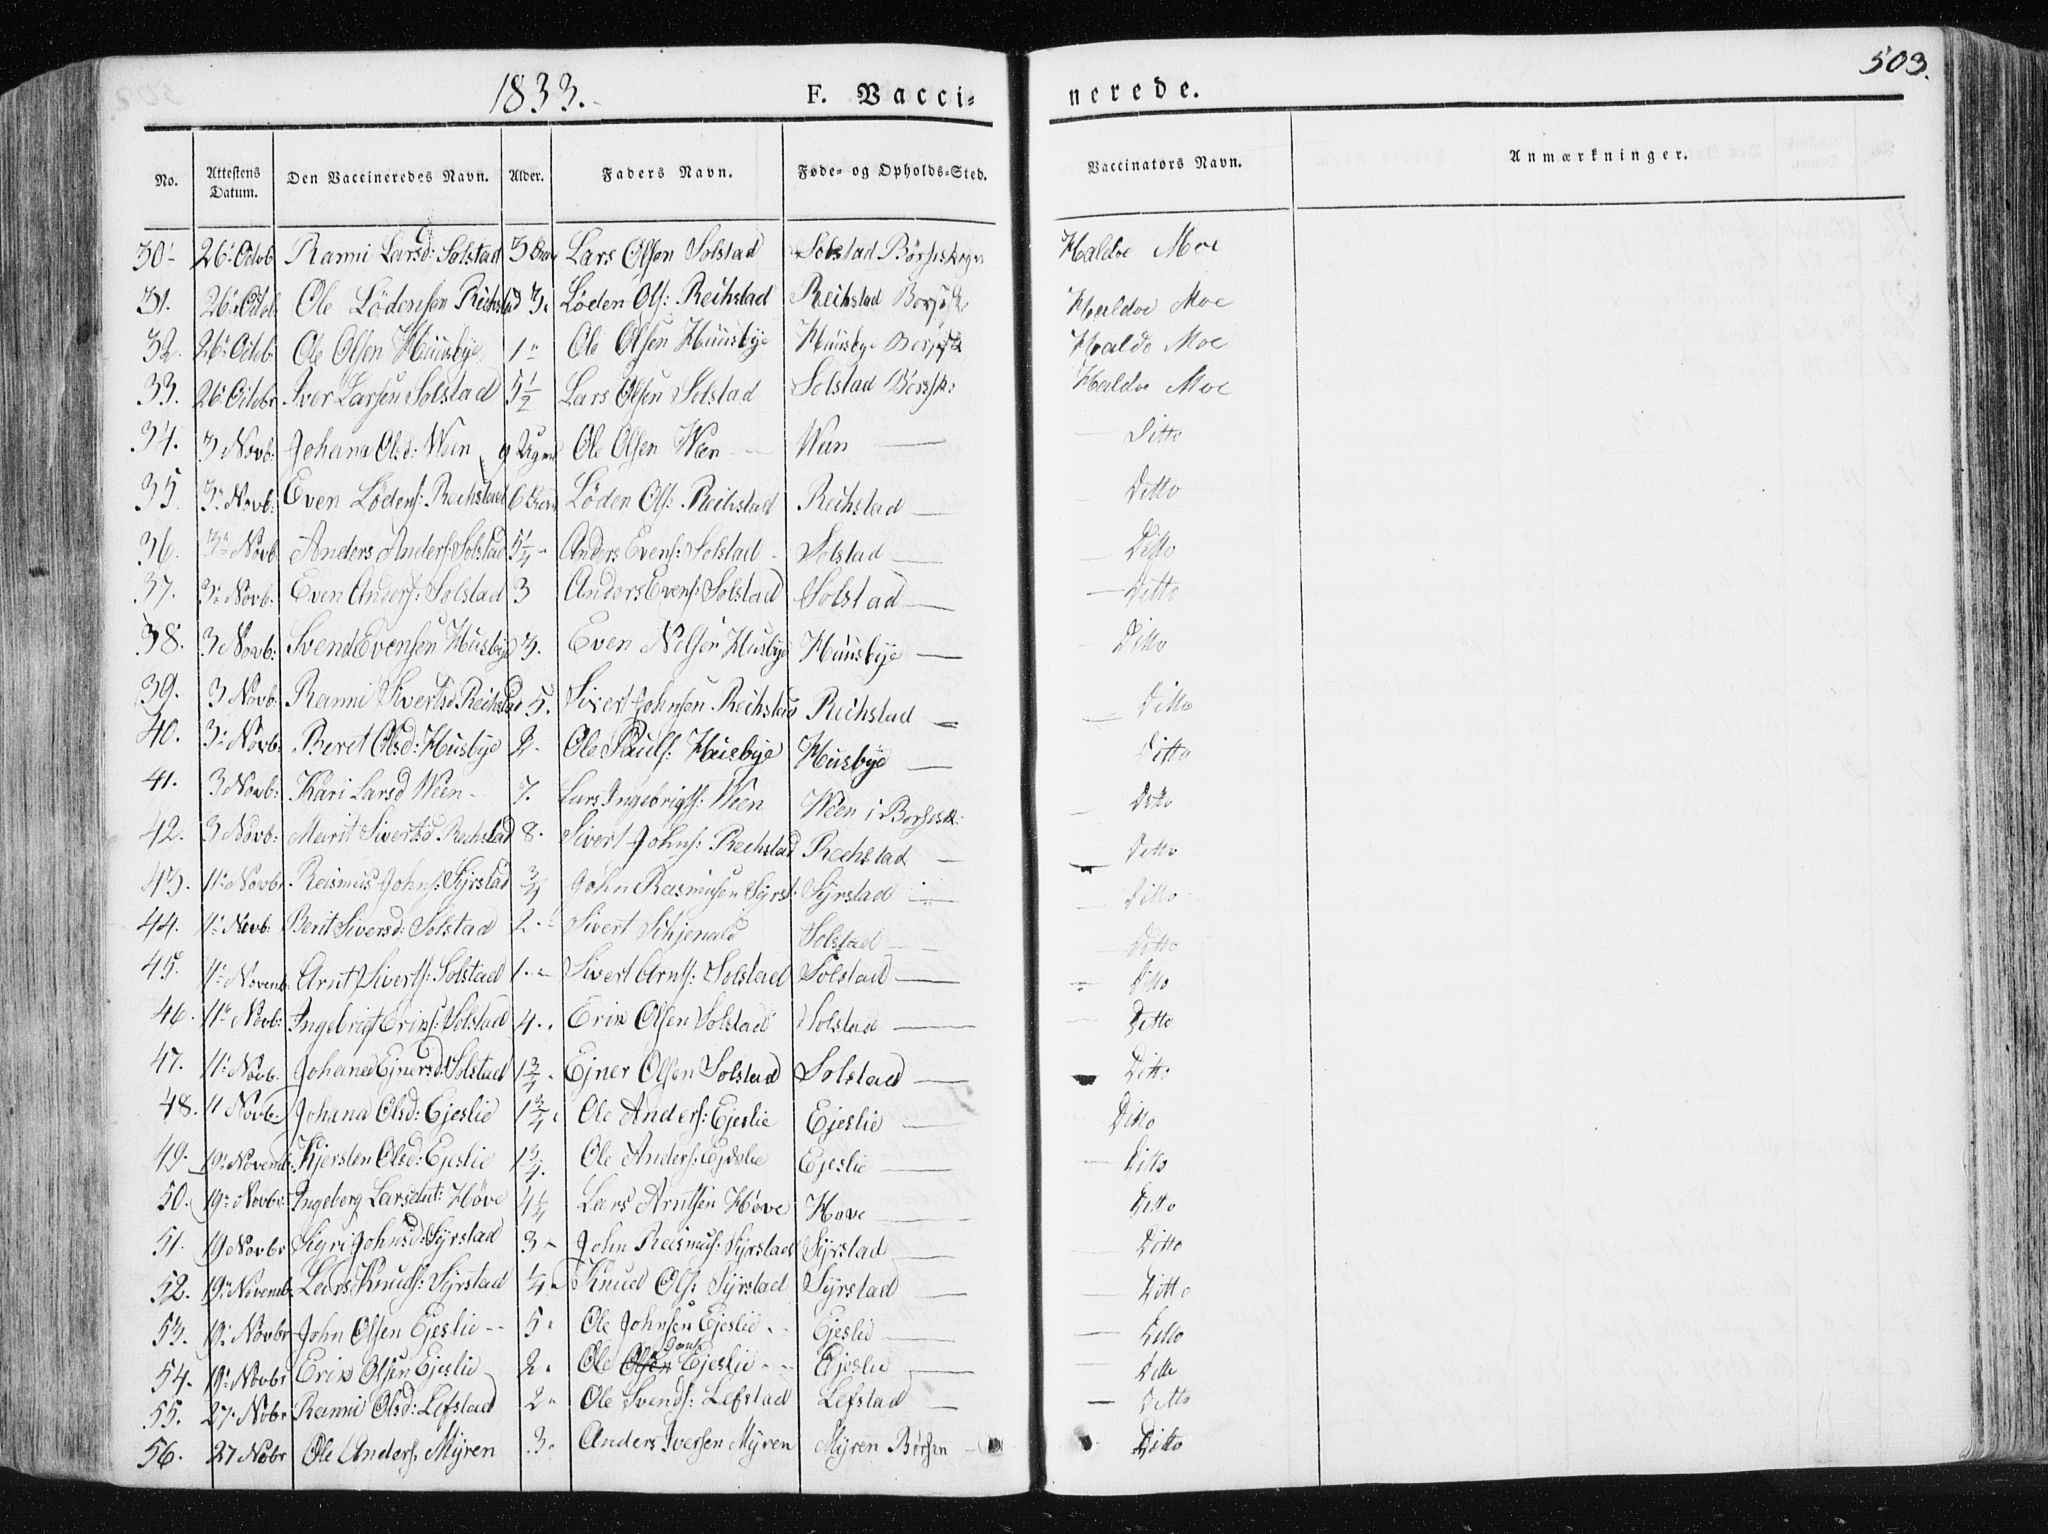 1833.
F. Vacci-
nerede.
503.
No. Attestens Datum. Den Vaccineredes Navn. Alder. Faders Navn. Føde- og Opholds-Sted. Vaccinators Navn. Anmærkninger.
30. 26. Octob Ranni Larsd: Solstad 3 Lars Olsen Solstad Solstad Børseskogn Haldoe Moe
31. 26. Octob. Ole Lödensen Reihstad 3. Löden Ols: Reihstad Reihstad Borsesk Haldoe Moe
32. 26. Octob. Ole Olsen Huusbye 1 " Ole Olsen Huusbye Huusbye Borsesk Haldo Moe
33. 26. Octobr Iver Larsen Solstad 5 1/2 Lars Olsen Solstad Solstad Börssk: Haldoe Moe
34. 3 Novb: Johana Olsd: Ween 9 Ole Olsen Ween Ween — — Ditto
35. 3. Novb: Even Lödens: Reihstad 6 Löden Ols: Reihstad Reihstad — — Ditto
36. 3. Novb Anders Anders: Solstad 5 1/4 Anders Evens: Solstad Solstad — — Ditto
37. 3. Novb: Even Anders: Solstad 3 Anders Evens: Solstad Solstad — — Ditto
38. 3 Novb: Svend Evensen Husbye 3. Even Nelsen Husbye Huusbye — — Ditto
39. 3 Novb: Ranni Sivertsd Reihstad 5. Sivert Johnsen Reihstad Reihstad — — Ditto
40. 3. Novb: Beret Olsd: Husbye 2 Ole Pauls: Husbye Husbye — Ditto
41. 3 Novb: Kari Larsd Ween 7. Lars Ingebrigts: Ween Ween i Borsesk: — Ditto
42. 3 Novb: Marit Sivertsd Reihstad 8. Sivert Johns: Reihstad Reihstad — — Ditto
43. 11. Novbr. Rasmus Johns: Syrstad 3/4 John Rasmusen Syrst: Syrstad — Ditto
44. 11. Novb: Berit Siversd: Solstad 2 Sivert Solstad — — Ditto
45. 11. Novemb. Arnt Siverts: Solstad 1. Sivert Arnts: Solstad Solstad — Ditto
46. 11. Novb: Ingebrigt Eriks: Solstad 4. Erik Olsen Solstad Solstad — — Ditto
47. 11. Novb. Johana Ejnersd: Solstad 1 3/4. Ejner Olsen Solstad Solstad — — Ditto
48. 11 Novb. Johana Olsd: Ejeslie 1 3/4 Ole Anders: Ejeslie Ejeslie — Ditto
49. 19. Novemb. Kjersten Olsd: Ejeslie 1 3/4. Ole Anders: Ejeslie Ejeslie — — Ditto
50. 19. Novbr: Ingeborg Larsdat: Höve 4 1/4 Lars Arntsen Höve Hove — — Ditto
51. 19 Novbr Sigri Johnsd: Syrstad 3 John Rasmus: Syrstad Syrstad — — Ditto
52. 19. Novemb. Lars Knuds: Syrstad 1/4 Knud Ols: Syrstad Syrstad — — Ditto
53. 19. Novbr John Olsen Ejeslie 5 Ole Johnsen Ejeslie Ejeslie — — Ditto
54. 19. Novbr Erik Olsen Ejeslie 2. Ole Olsen Ejeslie Ejeslie — — Ditto
55. 27. Nobr Ranni Olsd: Lefstad 2 Ole Svends: Lefstad Lefstad — — Ditto
56. 27 Nobr Ole Anders. Myren 3. Anders Iversen Myren Myren Börsen — Ditto